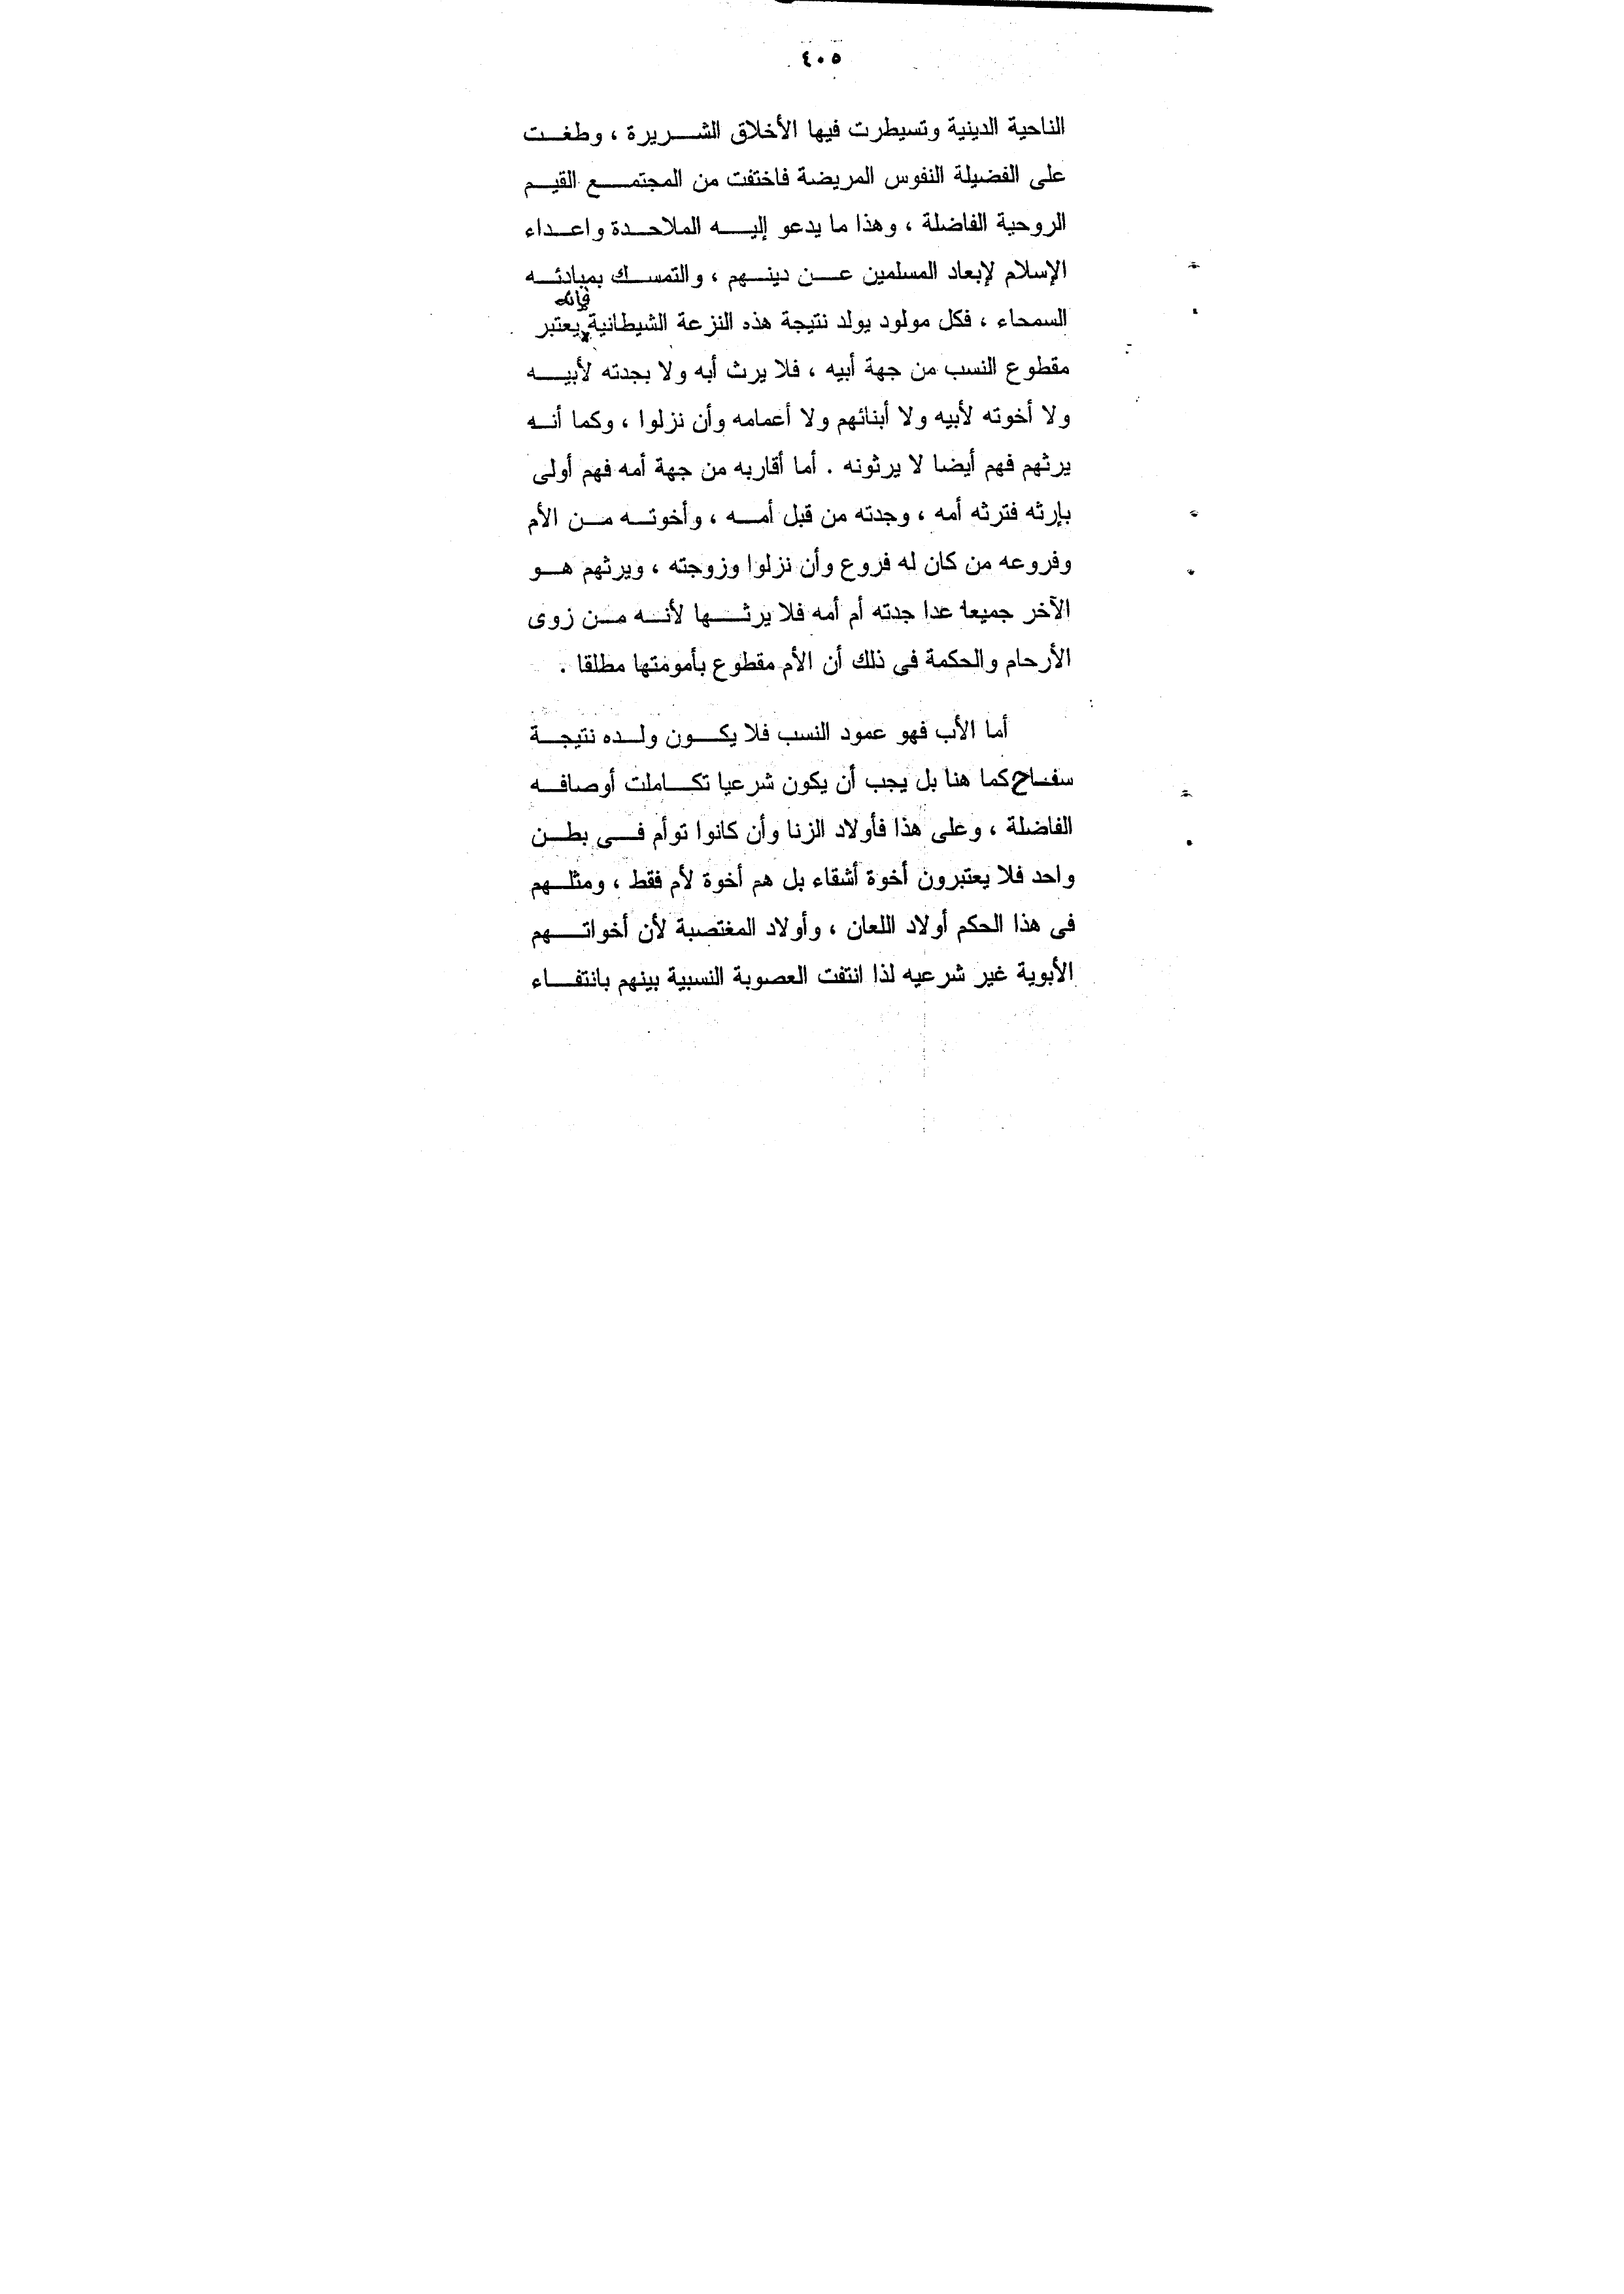 ٤٠٥
الناحية الدينية وتسيطرت فيها الأخلاق الشريرة ، وطغت
على الفضيلة النفوس المريضة فاختفت من المجتمع القيم
الروحية الفاضلة ، وهذا ما يدعو إليه الملاحدة واعداء
الإسلام لإبعاد المسلمين عن دينهم ، والتمسك بمبادئه
فإنه
السمحاء ، فكل مولود يولد نتيجة هذه النزعة الشيطانية يعتبر
مقطوع النسب من جهة أبيه ، فلا يرث أبه ولا بجدته لأبيه
ولا أخوته لأبيه ولا أبنائهم ولا أعمامه وأن نزلوا ، وكما أنه
يرثهم فهم أيضا لا يرثونه . أما أقاربه من جهة أمه فهم أولى
بإرثه فترثه أمه ، وجدته من قبل أمه ، وأخوته من الأم
وفروعه من كان له فروع وأن نزلوا وزوجته ، ويرثهم هو
الآخر جميعا عدا جدته أم أمه فلا يرثها لأنه من زوى
الأرحام والحكمة فى ذلك أن الأم مقطوع بأمومتها مطلقا .
أما الأب فهو عمود النسب فلا يكون ولده نتيجة
سفاح كما هنا بل يجب أن يكون شرعيا تكاملت أوصافه
الفاضلة ، وعلى هذا فأولاد الزنا وأن كانوا توأم فى بطن
واحد فلا يعتبرون أخوة أشقاء بل هم أخوة لأم فقط ، ومثلهم
فى هذا الحكم أولاد اللعان ، وأولاد المغتصبة لأن أخواتهم
الأبوية غير شرعيه لذا انتفت العصوبة النسبية بينهم بانتفاء